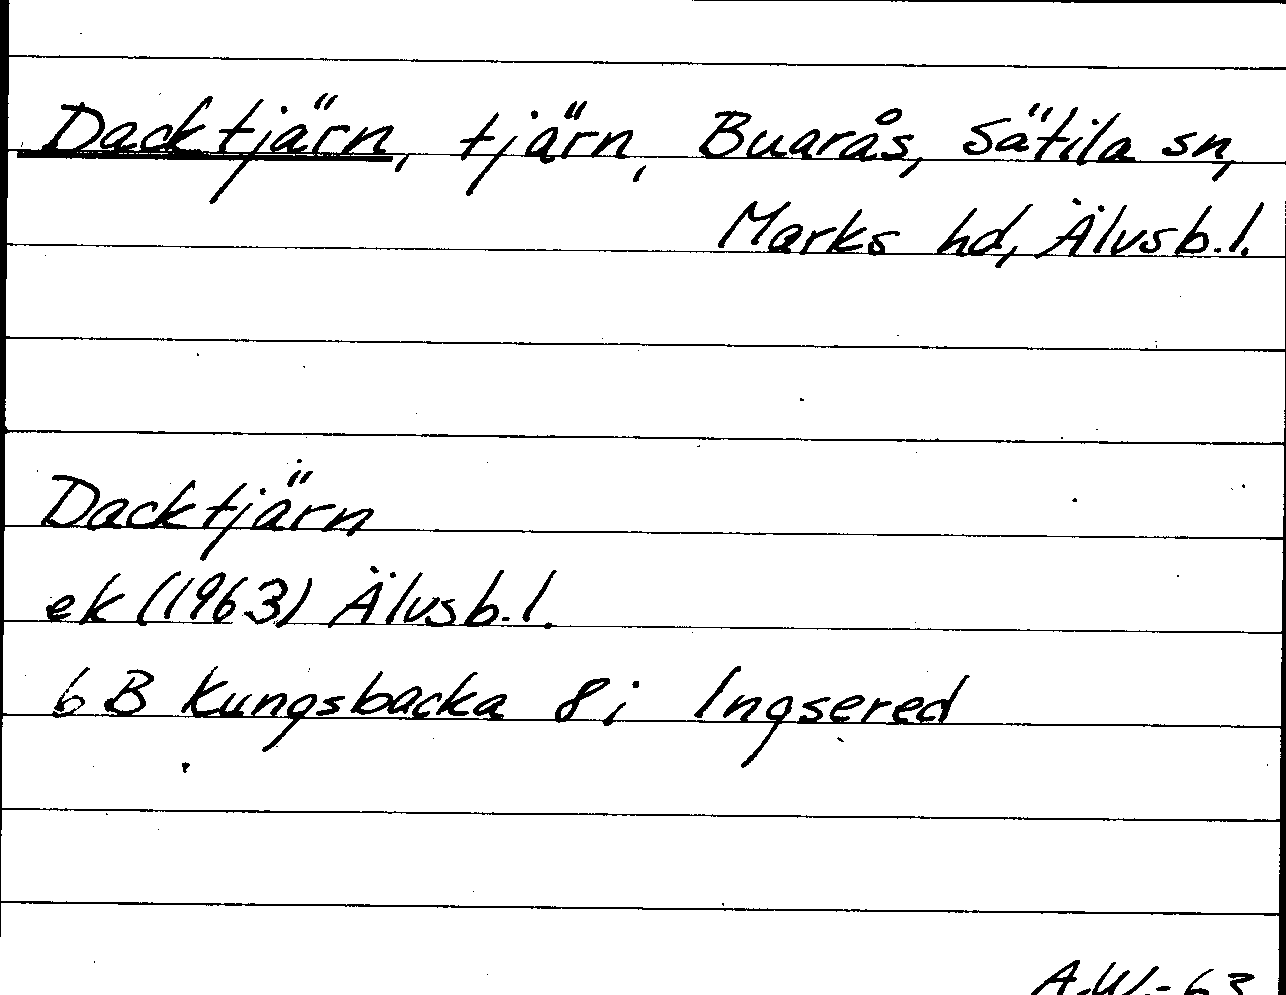 Dacktjärn, tjärn, Buarås, Sätila sn,
Marks hd, Älvsb.l.
Dacktjärn
ek (1963) Älvsb.l.
6 B Kungsbacka 8 i Ingsered
A.W.-63